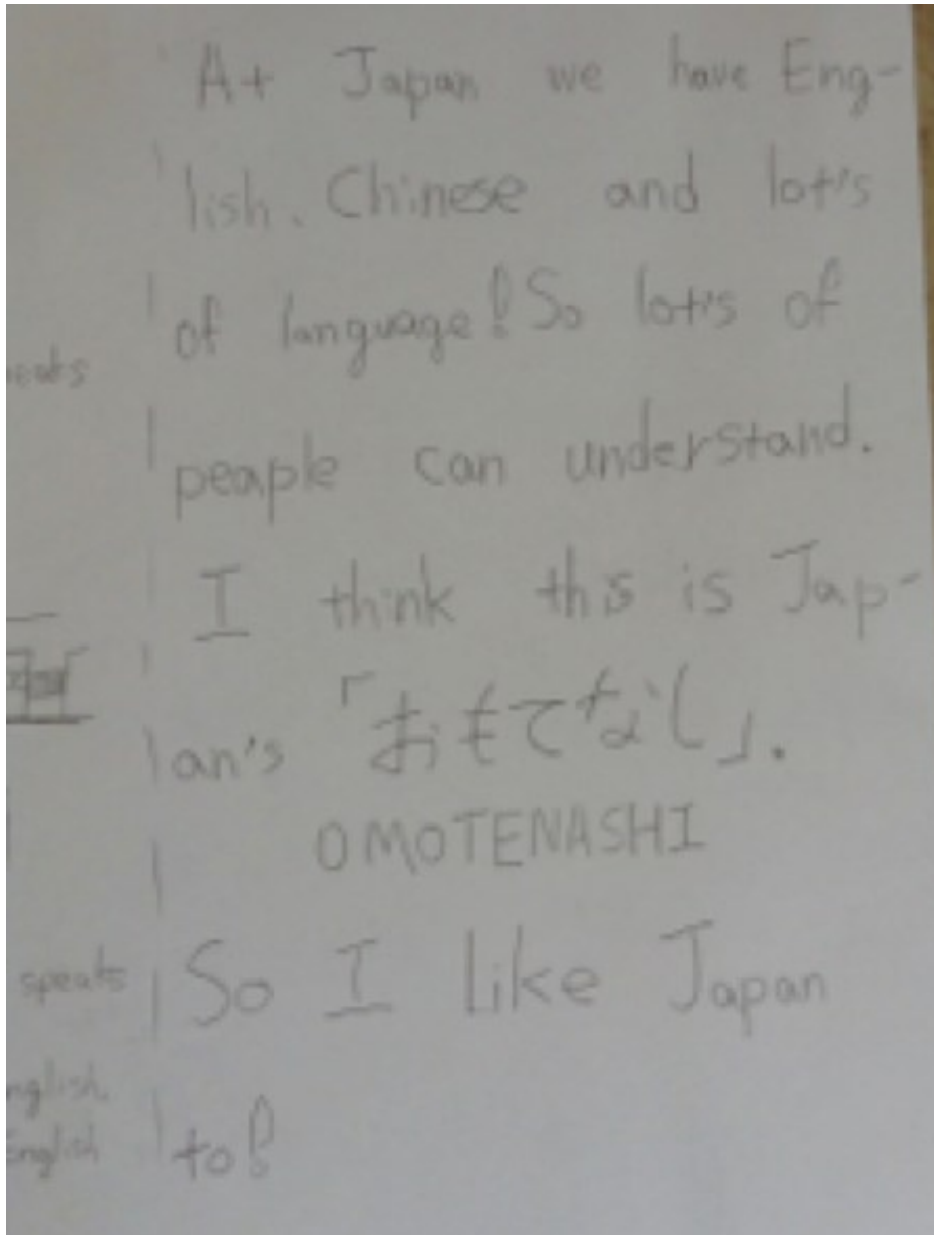 At Japan we have Eng-
lish. Chinese and lot's
of language! So lot's of
peaple can understand.
I think this is Jap-
an's 「おもてなし」.
OMOTENASHI
So I like Japan
to!
speaks
nglish.
English